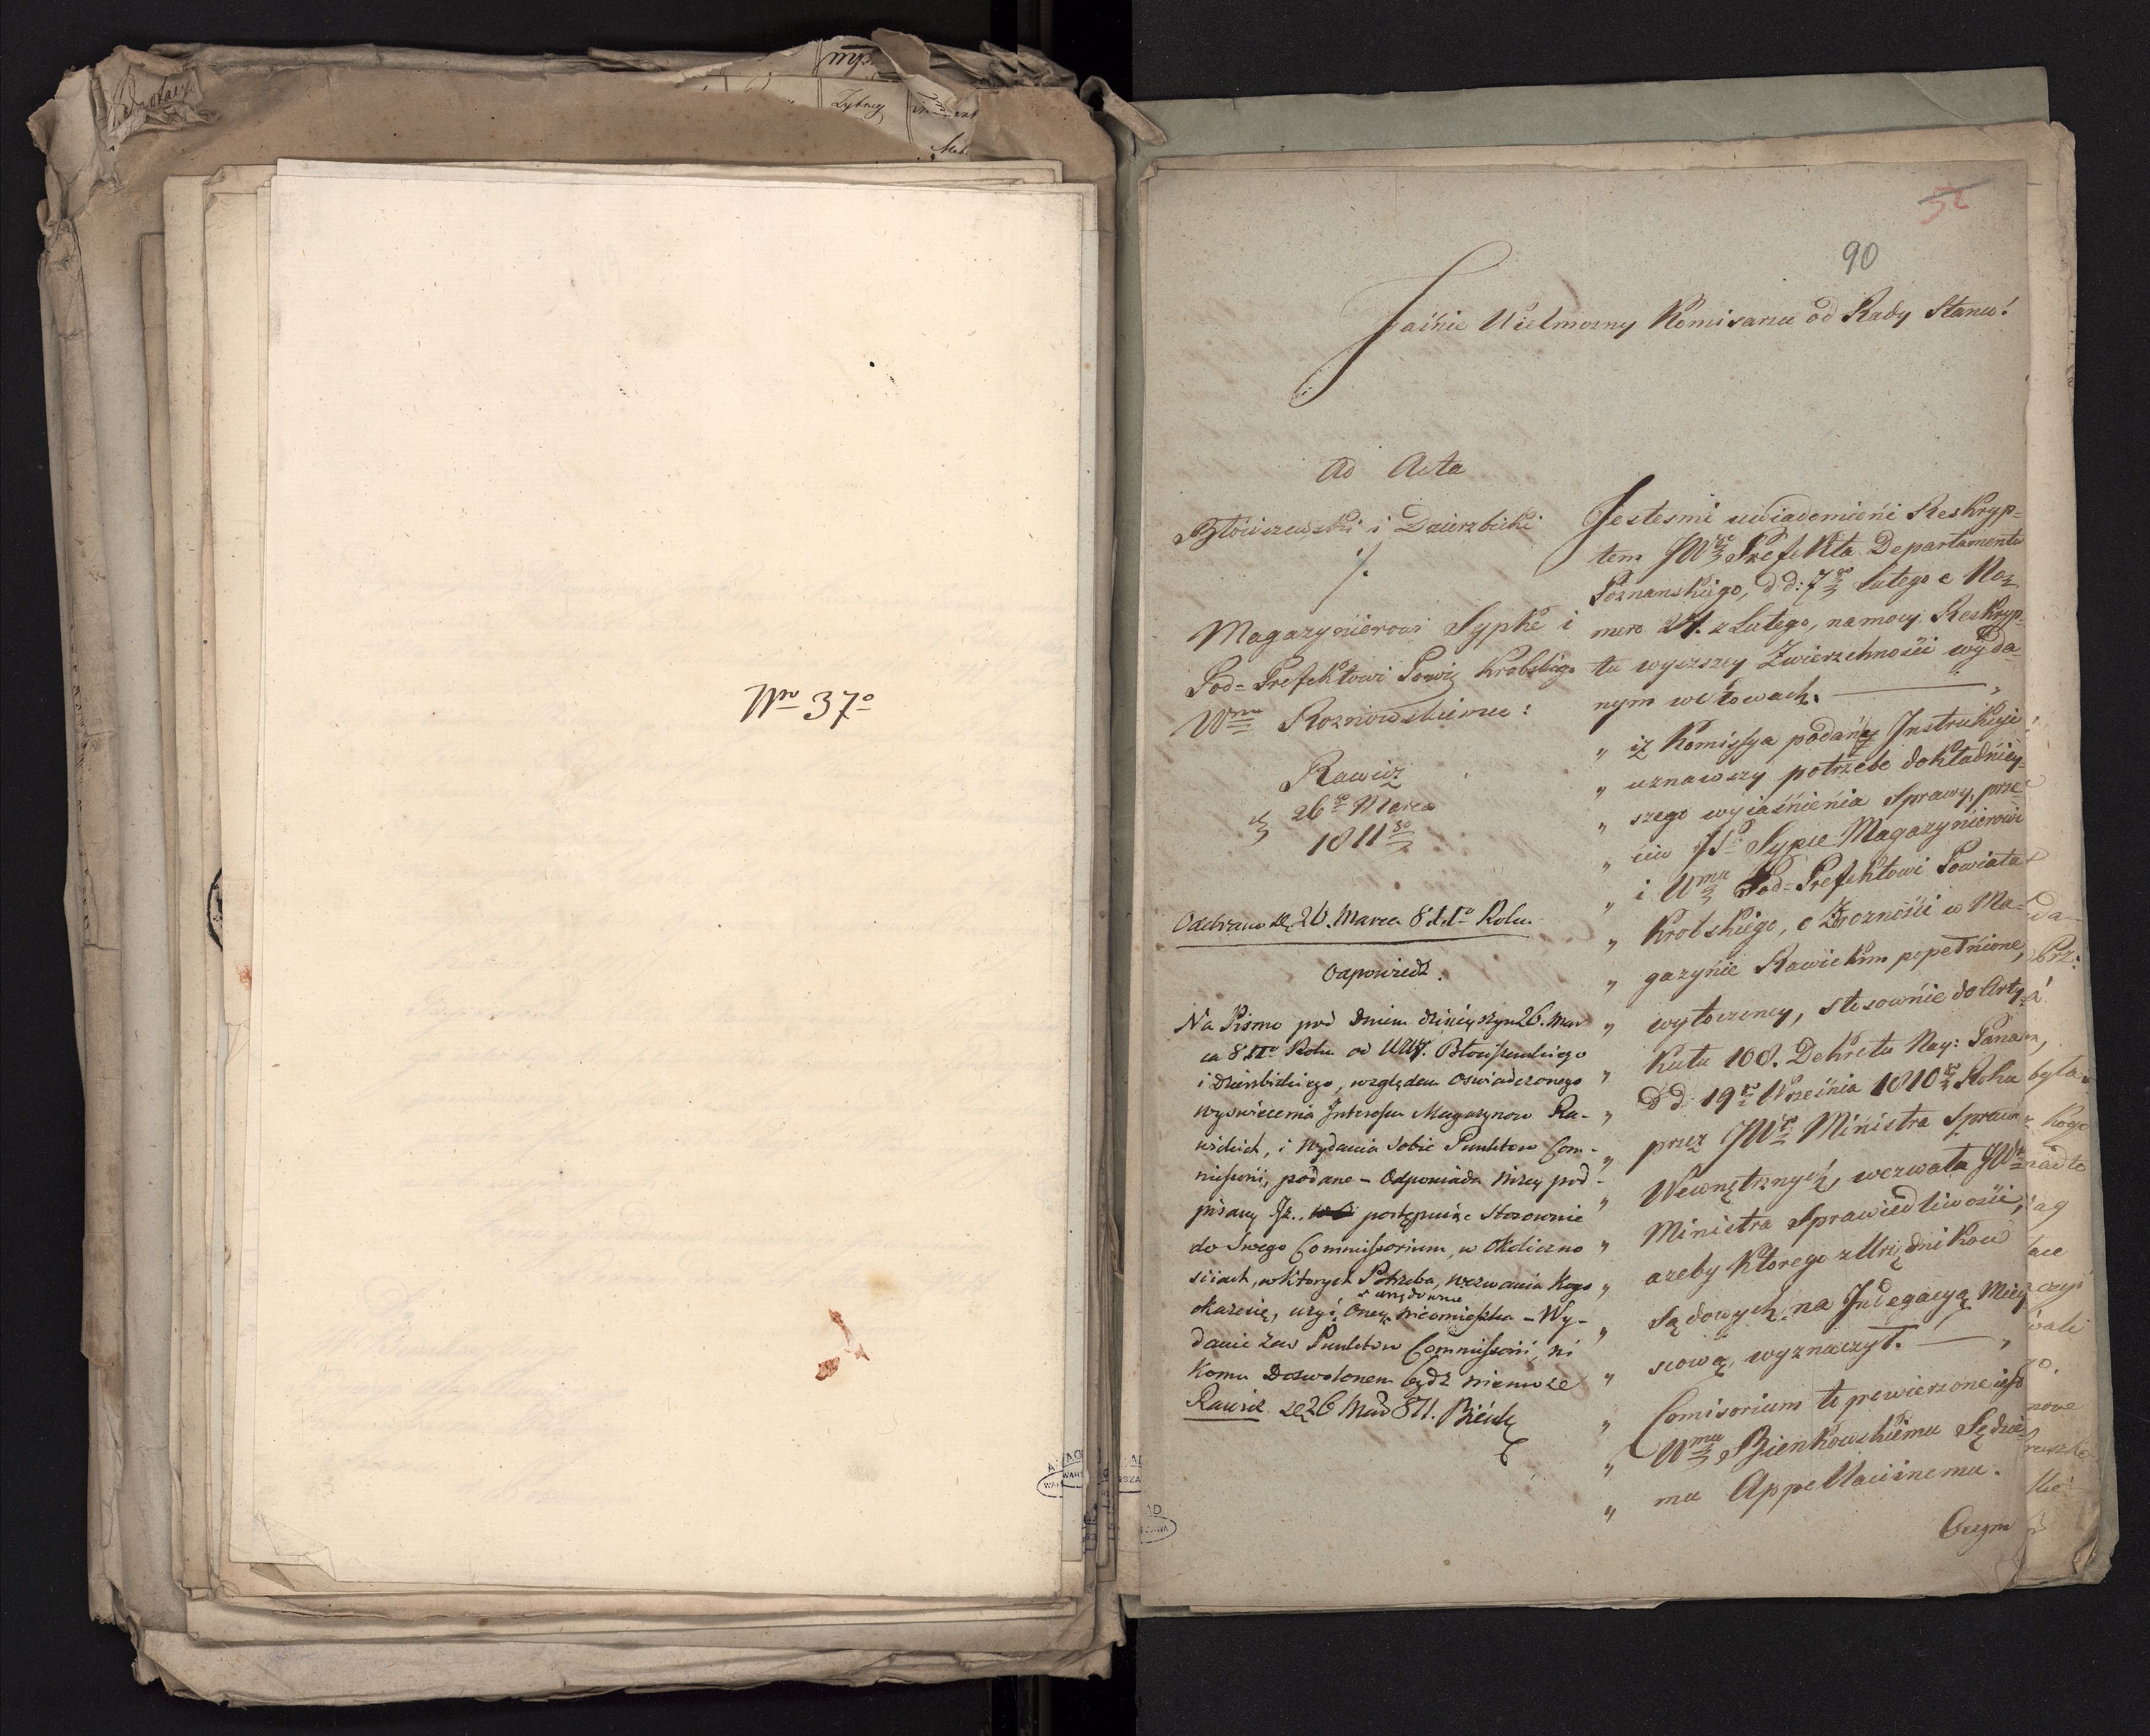 Nro 37o
52
90
Jaśnie Wielmozny Komisarzu od Rady Stanu!
Ad Acta
Błociszewski i Dzierzbicki
./.
Magazynierowi Sypke i
Pod=Prefektowi Powiu Krobskiego
Wmu Roznowskiemu:
Rawicz
26go Marca
1811go
Odebrano d. 26. Marca 811o Roku
Odpowiedz.
Na Pismo pod Dniem dzisieyszym 26. Mar
ca 811o Roku od WW. Błociszewskiego
i Dzierzbickiego, względem Oswiadczonego
wyswiecenia Interessu Magazynow Ra-
wickich, i Wydania Sobie Punktow Com-
missorii, podane - Odpowiada niżey pod-
pisany Iż.. postępuiąc Stosownie
do Swego Commissorium, w Okoliczno
sciach, w ktorych Potrzeba, wezwania kogo
okaże się, użyć Oney urzędownie nieomieszka - Wy-
danie zaś Punktow Commissorii, ni
komu Dozwolonem bydz niemoze
Rawicz d. 26 Mar 811.
Jestesmi uwiadomieńi Reskryp=
tem JWgo Prefekta Departamentu
Poznanskiego, d d: 7go Lutego e No=
mero 24. z Lutego, na mocy Reskryp=
tu wyzszey Zwierzchności wyda=
nym w słowach.
„ iż Komissya podaney Instrukcyi
„ uznawszy potrzebe dokładniey=
„ szego wyiaśnienia Sprawy, prze
„ ciw JP. Sypce Magazynierowi
„ i Wmu Pod=Prefektowi Powiatu
„ Krobskiego, o Zdrożności w Ma=
„ gazynie Rawickim popełnione,
„ wytoczoney, stosownie do Arty=
„ kułu 108. Dekretu Nay: Pana
„ D d 19go Września 1810go Roku
„ przez JWgo Ministra Spraw
„ Wewnętrznych, wezwała JWgo
„ Ministra Sprawiedliwości,
„ azeby ktorego z Urzędnikow
„ sądowych, na Indegacyą Miey
„ scową, wyznaczył.
„ Comisorium to powierzone iest
„ Wmu Bienkowskiemu Sędzie=
„ mu Appellacinemu.
Czym